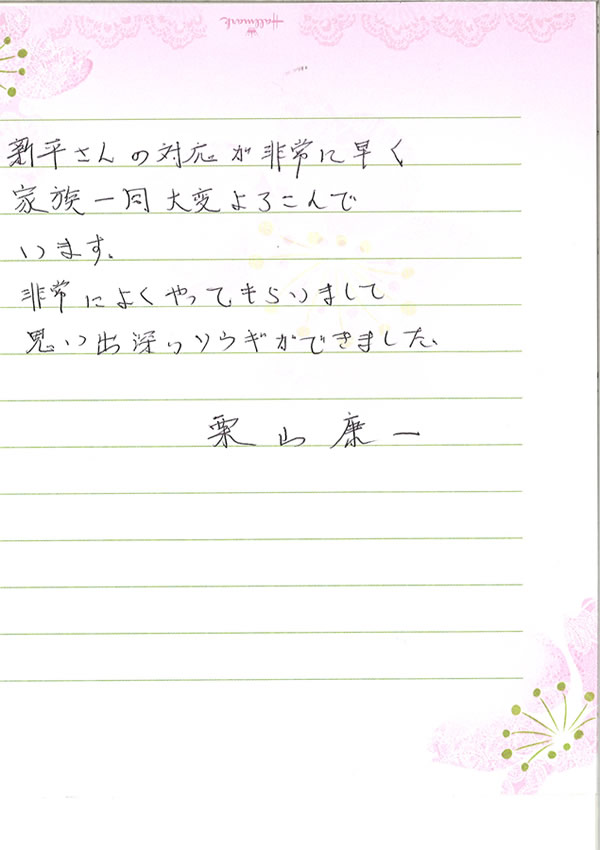 Hallmark
新平さんの対応が非常に早く
家族一同大変よろこんで
います。
非常によくやってもらいまして
思い出深いソウギができました。
栗山康一